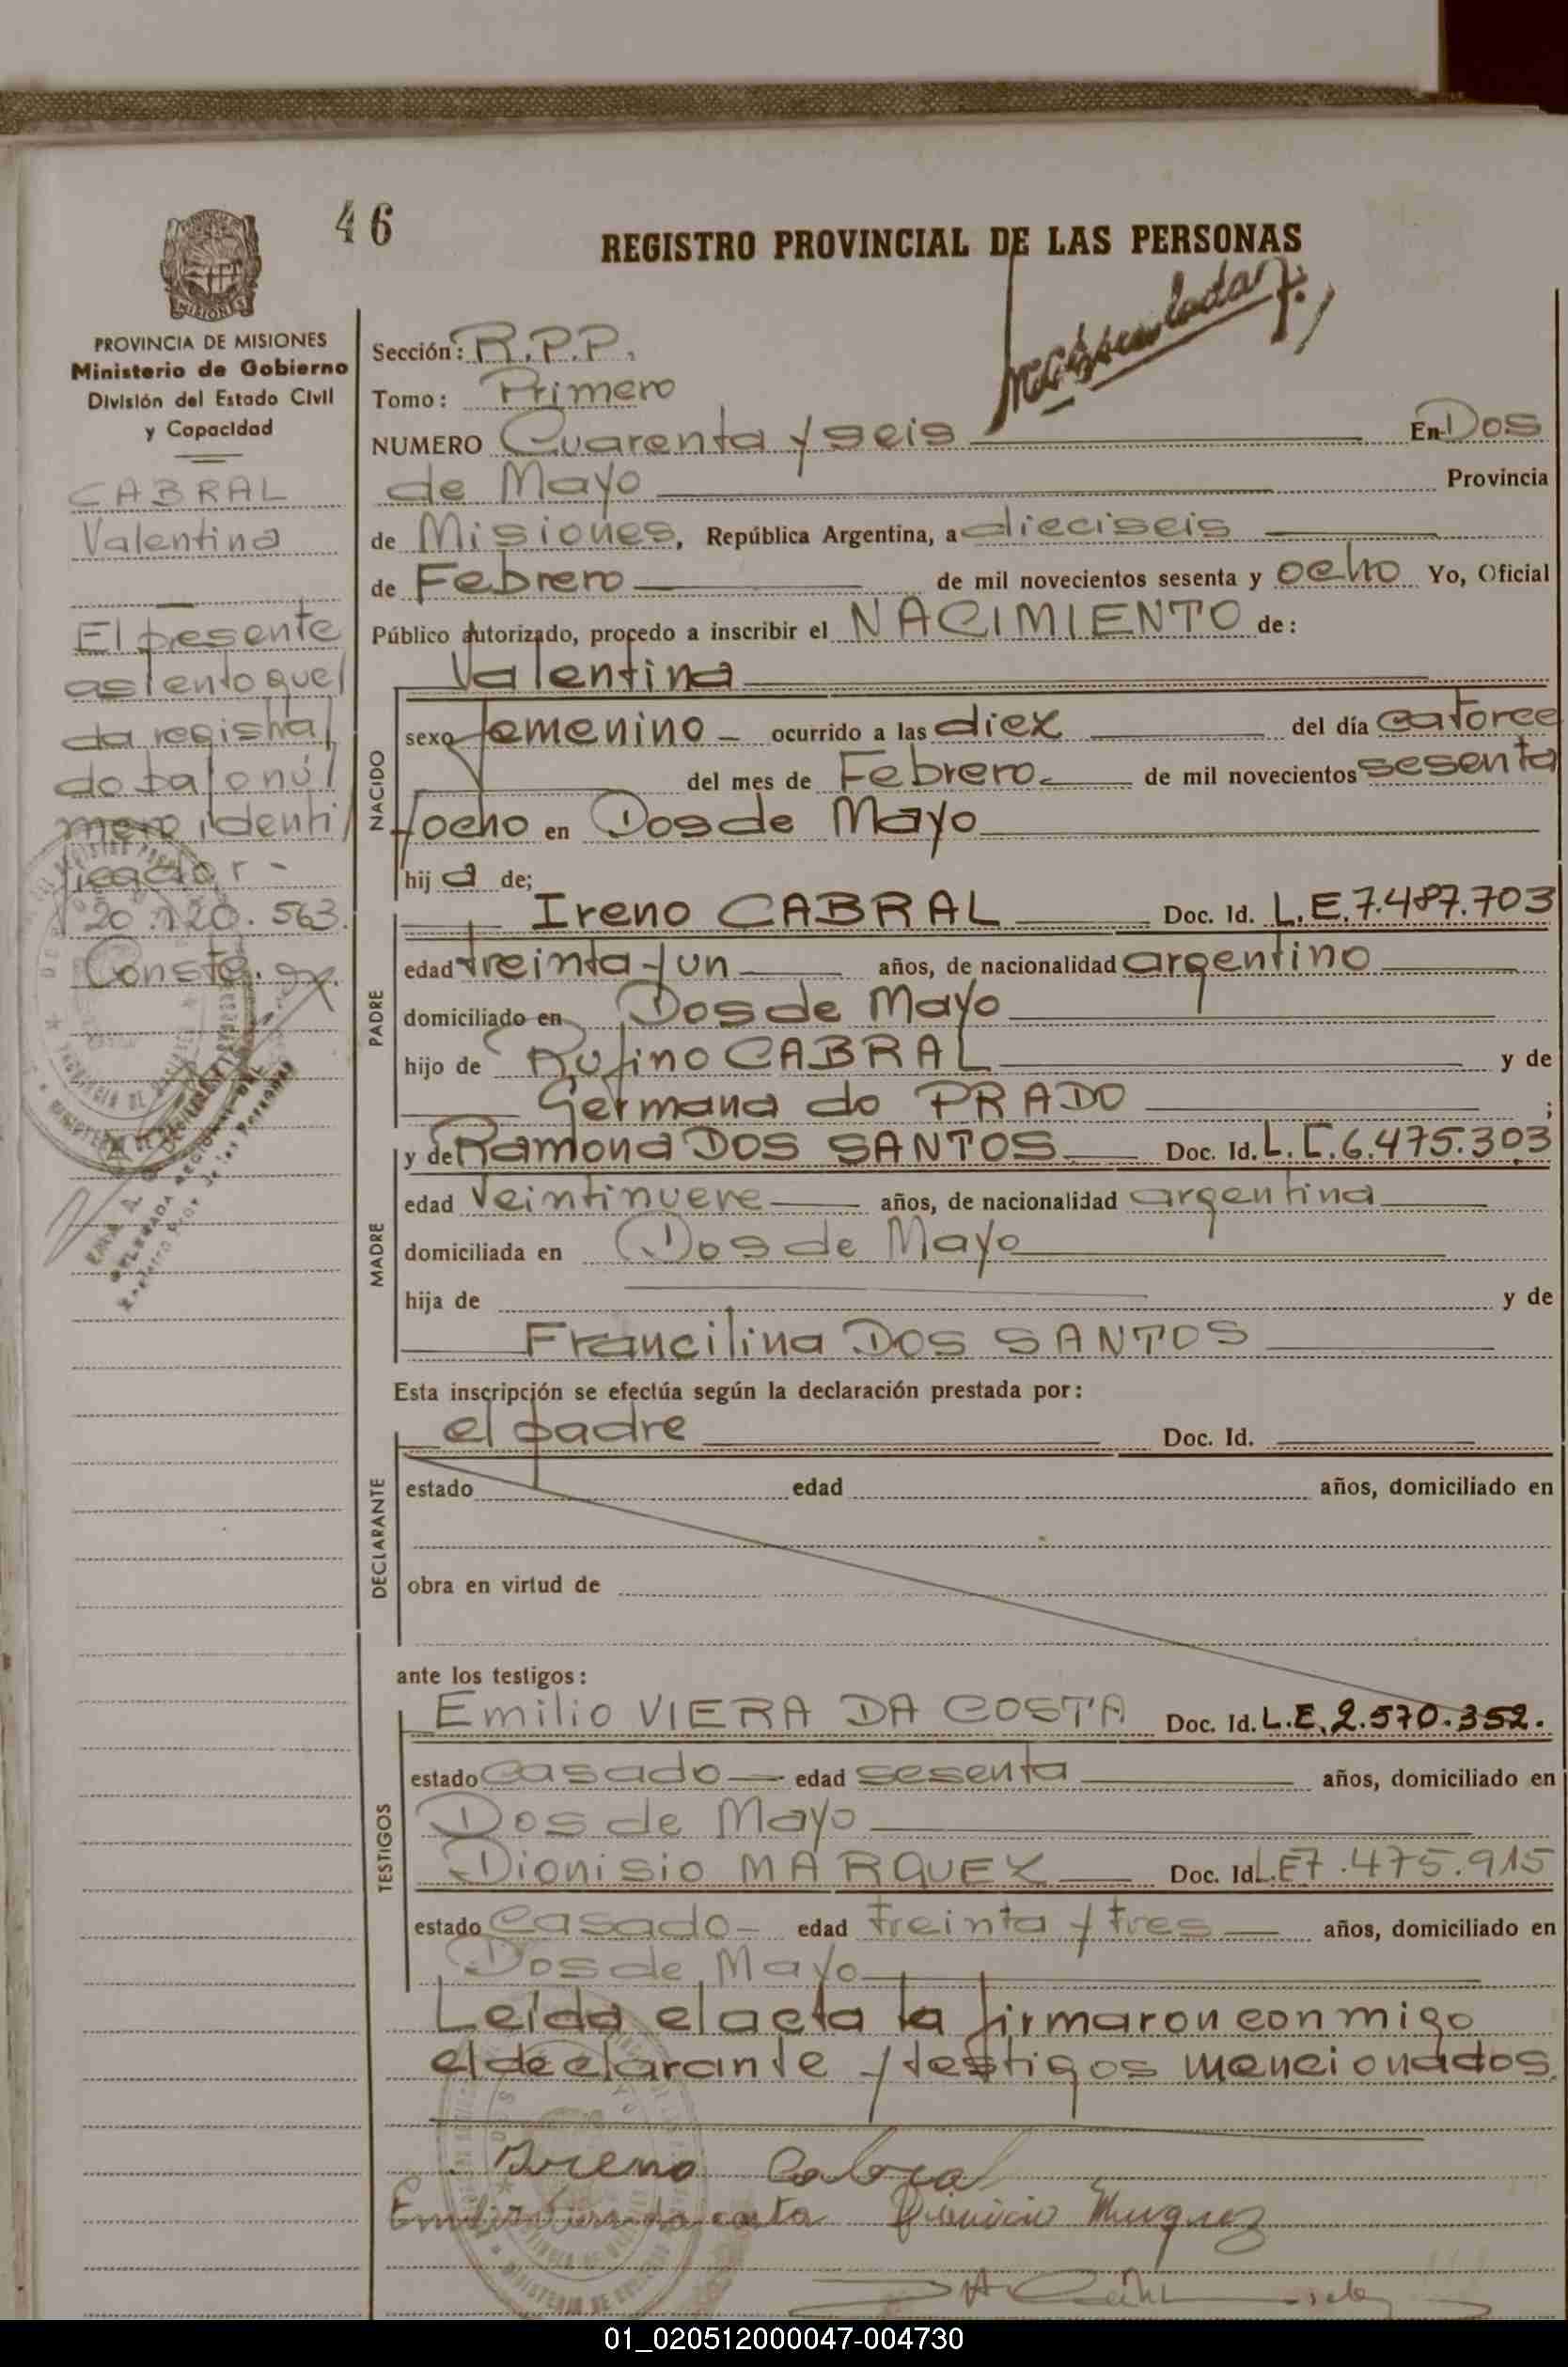 46
REGISTRO PROVINCIAL DE LAS PERSONAS
MISIONES
PROVINCIA DE MISIONES
Ministerio de Gobierno
División del Estado Civil
y Capacidad
CABRAL
Valentina
El presente
asiento que
da registra
do bajo nú
mero identi
ficador -
20.120.563.
Conste.
Sección: R.P.P.
Tomo: Primero
NUMERO Cuarenta y seis En Dos
de Mayo Provincia
de Misiones, República Argentina, a dieciseis
de Febrero de mil novecientos sesenta y ocho Yo, Oficial
Público autorizado, procedo a inscribir el NACIMIENTO de:
Valentina
NACIDO
sexo femenino - ocurrido a las diez del día catorce
del mes de Febrero de mil novecientos sesenta
y ocho en Dos de Mayo
hij a de;
PADRE
Ireno CABRAL Doc. Id. L.E.7.487.703
edad treinta y un años, de nacionalidad argentino
domiciliado en Dos de Mayo
hijo de Rufino CABRAL y de
Germana do PRADO ;
MADRE
y de Ramona DOS SANTOS Doc. Id. L.C.6.475.303
edad Veintinueve años, de nacionalidad argentina
domiciliada en Dos de Mayo
hija de y de
Francilina DOS SANTOS
Esta inscripción se efectúa según la declaración prestada por:
DECLARANTE
el padre Doc. Id.
estado edad años, domiciliado en
obra en virtud de
ante los testigos:
TESTIGOS
Emilio VIERA DA COSTA Doc. Id. L.E.2.570.352.
estado casado edad sesenta años, domiciliado en
Dos de Mayo
Dionisio MARQUEZ Doc. Id. L.E7.475.915
estado Casado - edad treinta y tres años, domiciliado en
Dos de Mayo
Leída el acta la firmaron conmigo
el declarante y testigos mencionados.
Ireno Cabral
01_020512000047-004730